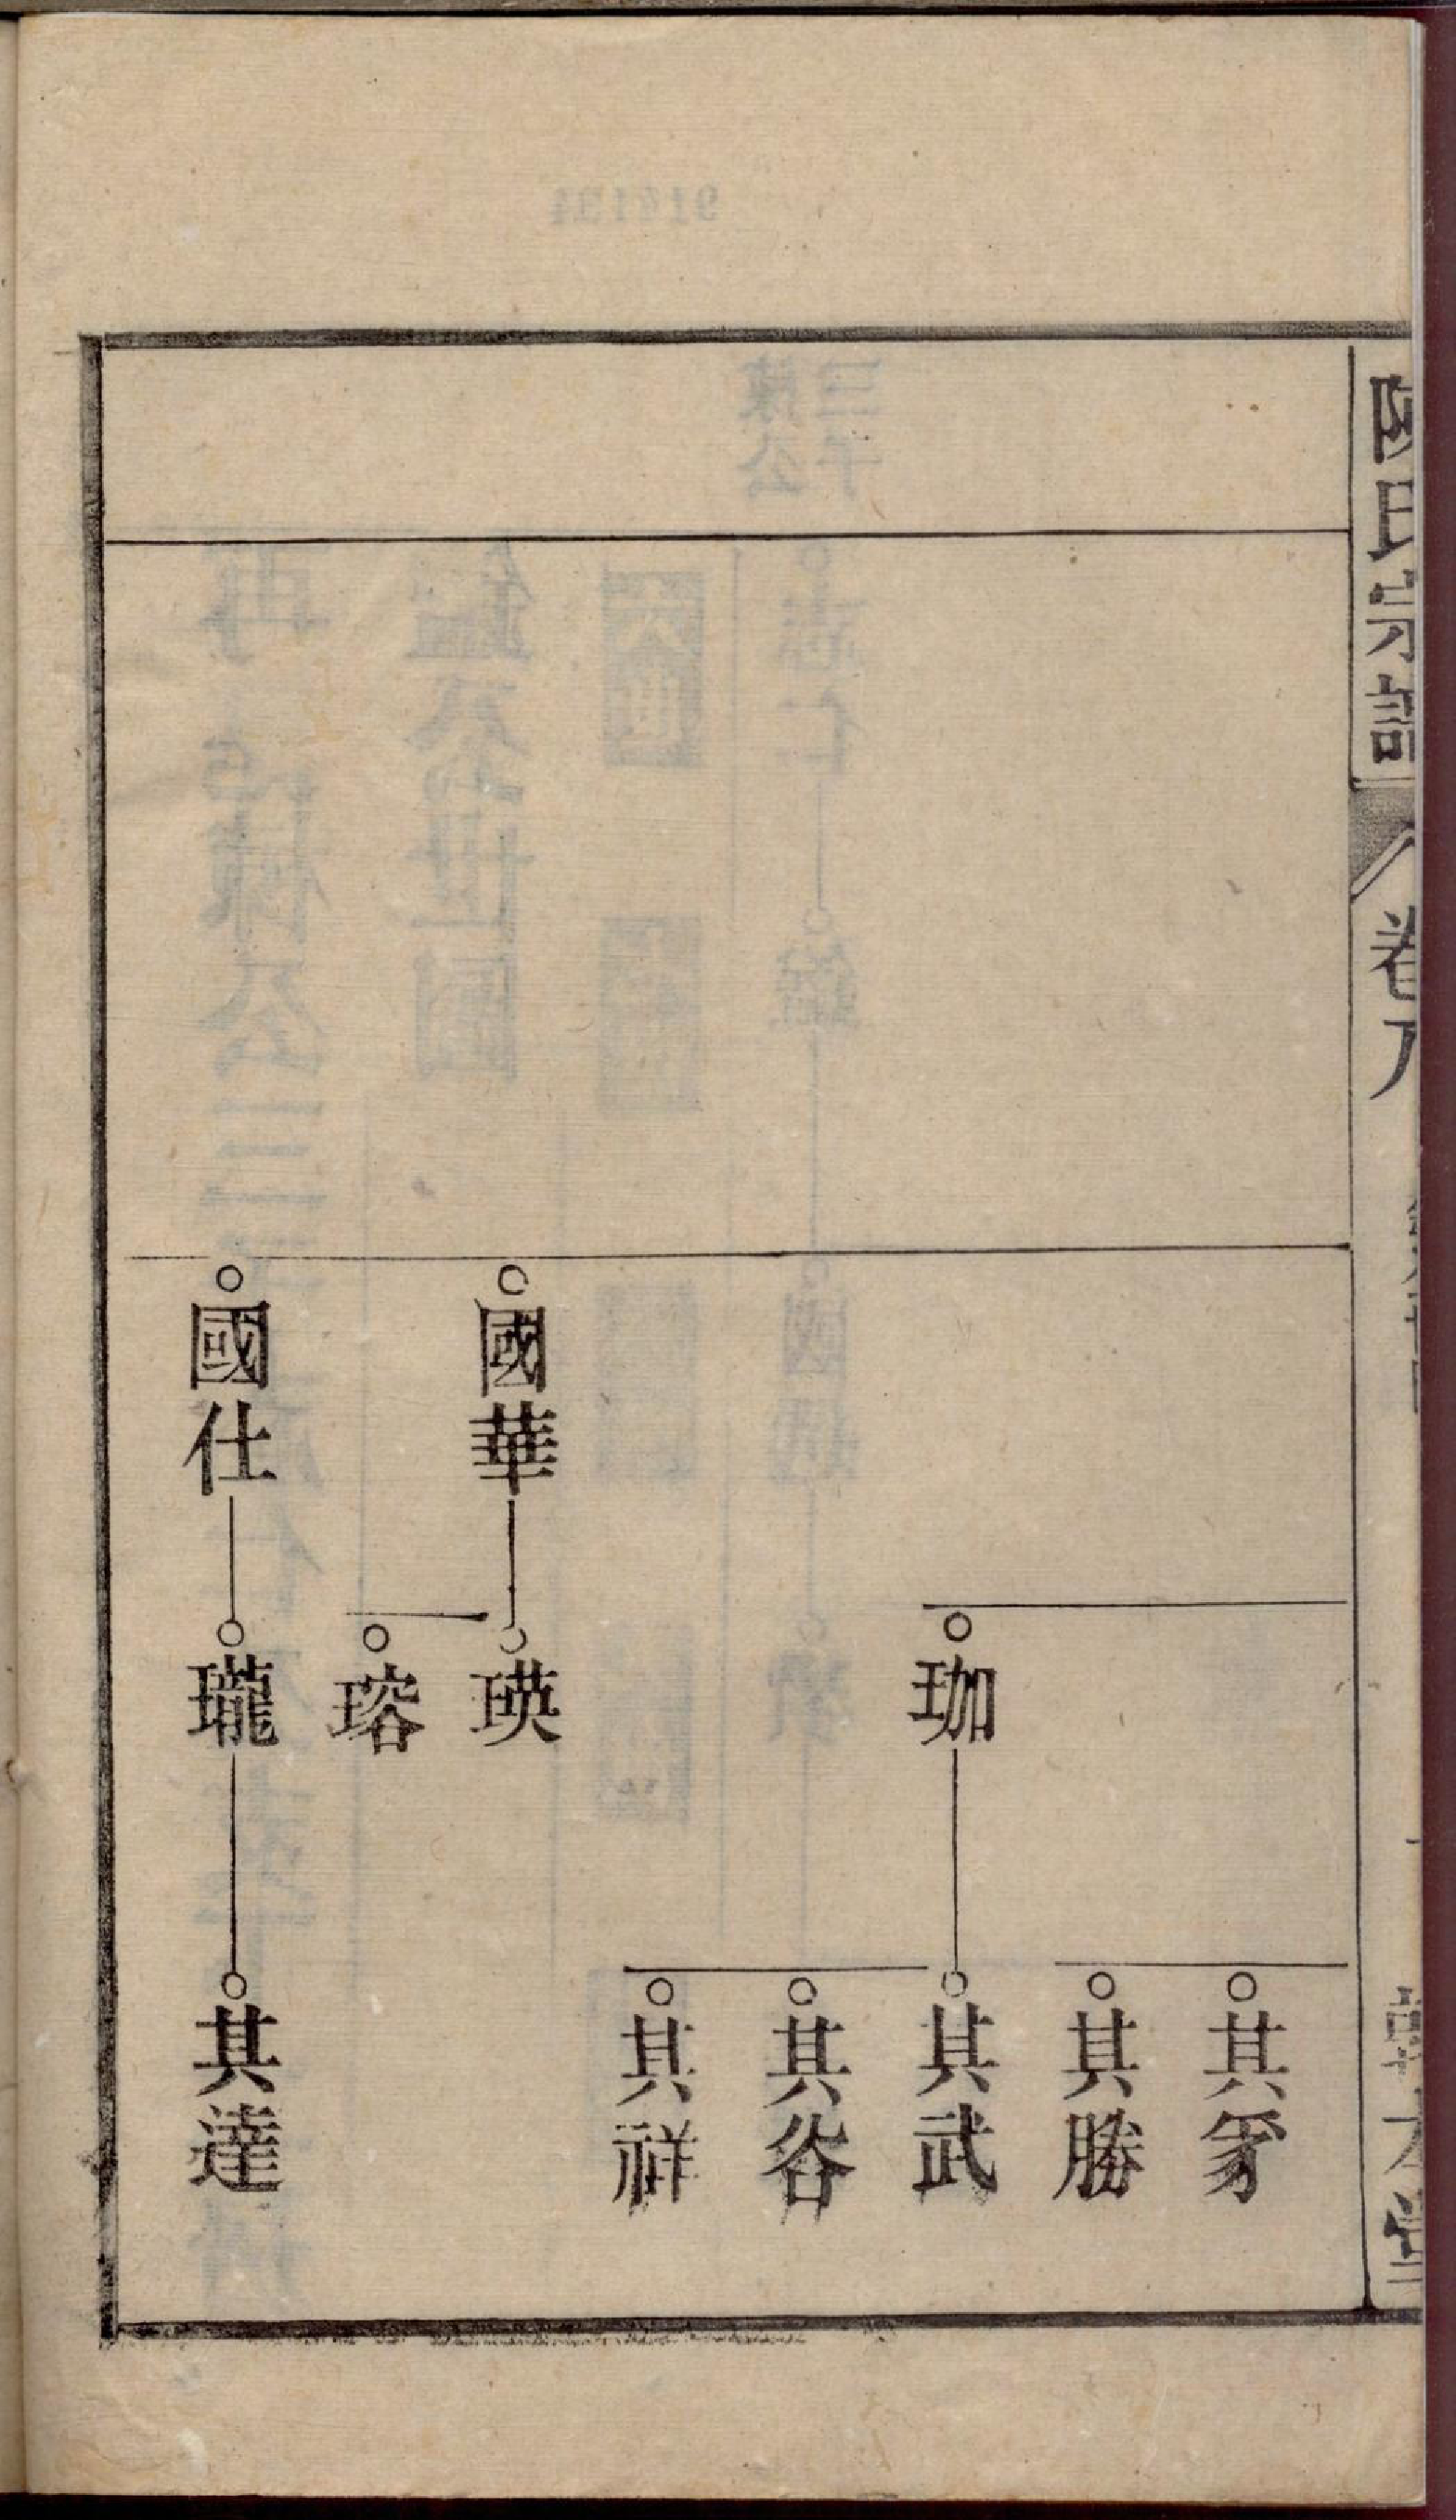 卷八
其豸
其勝
珈
其武
其谷
其祥
國華
瑛
瑢
國仕
瓏
其達